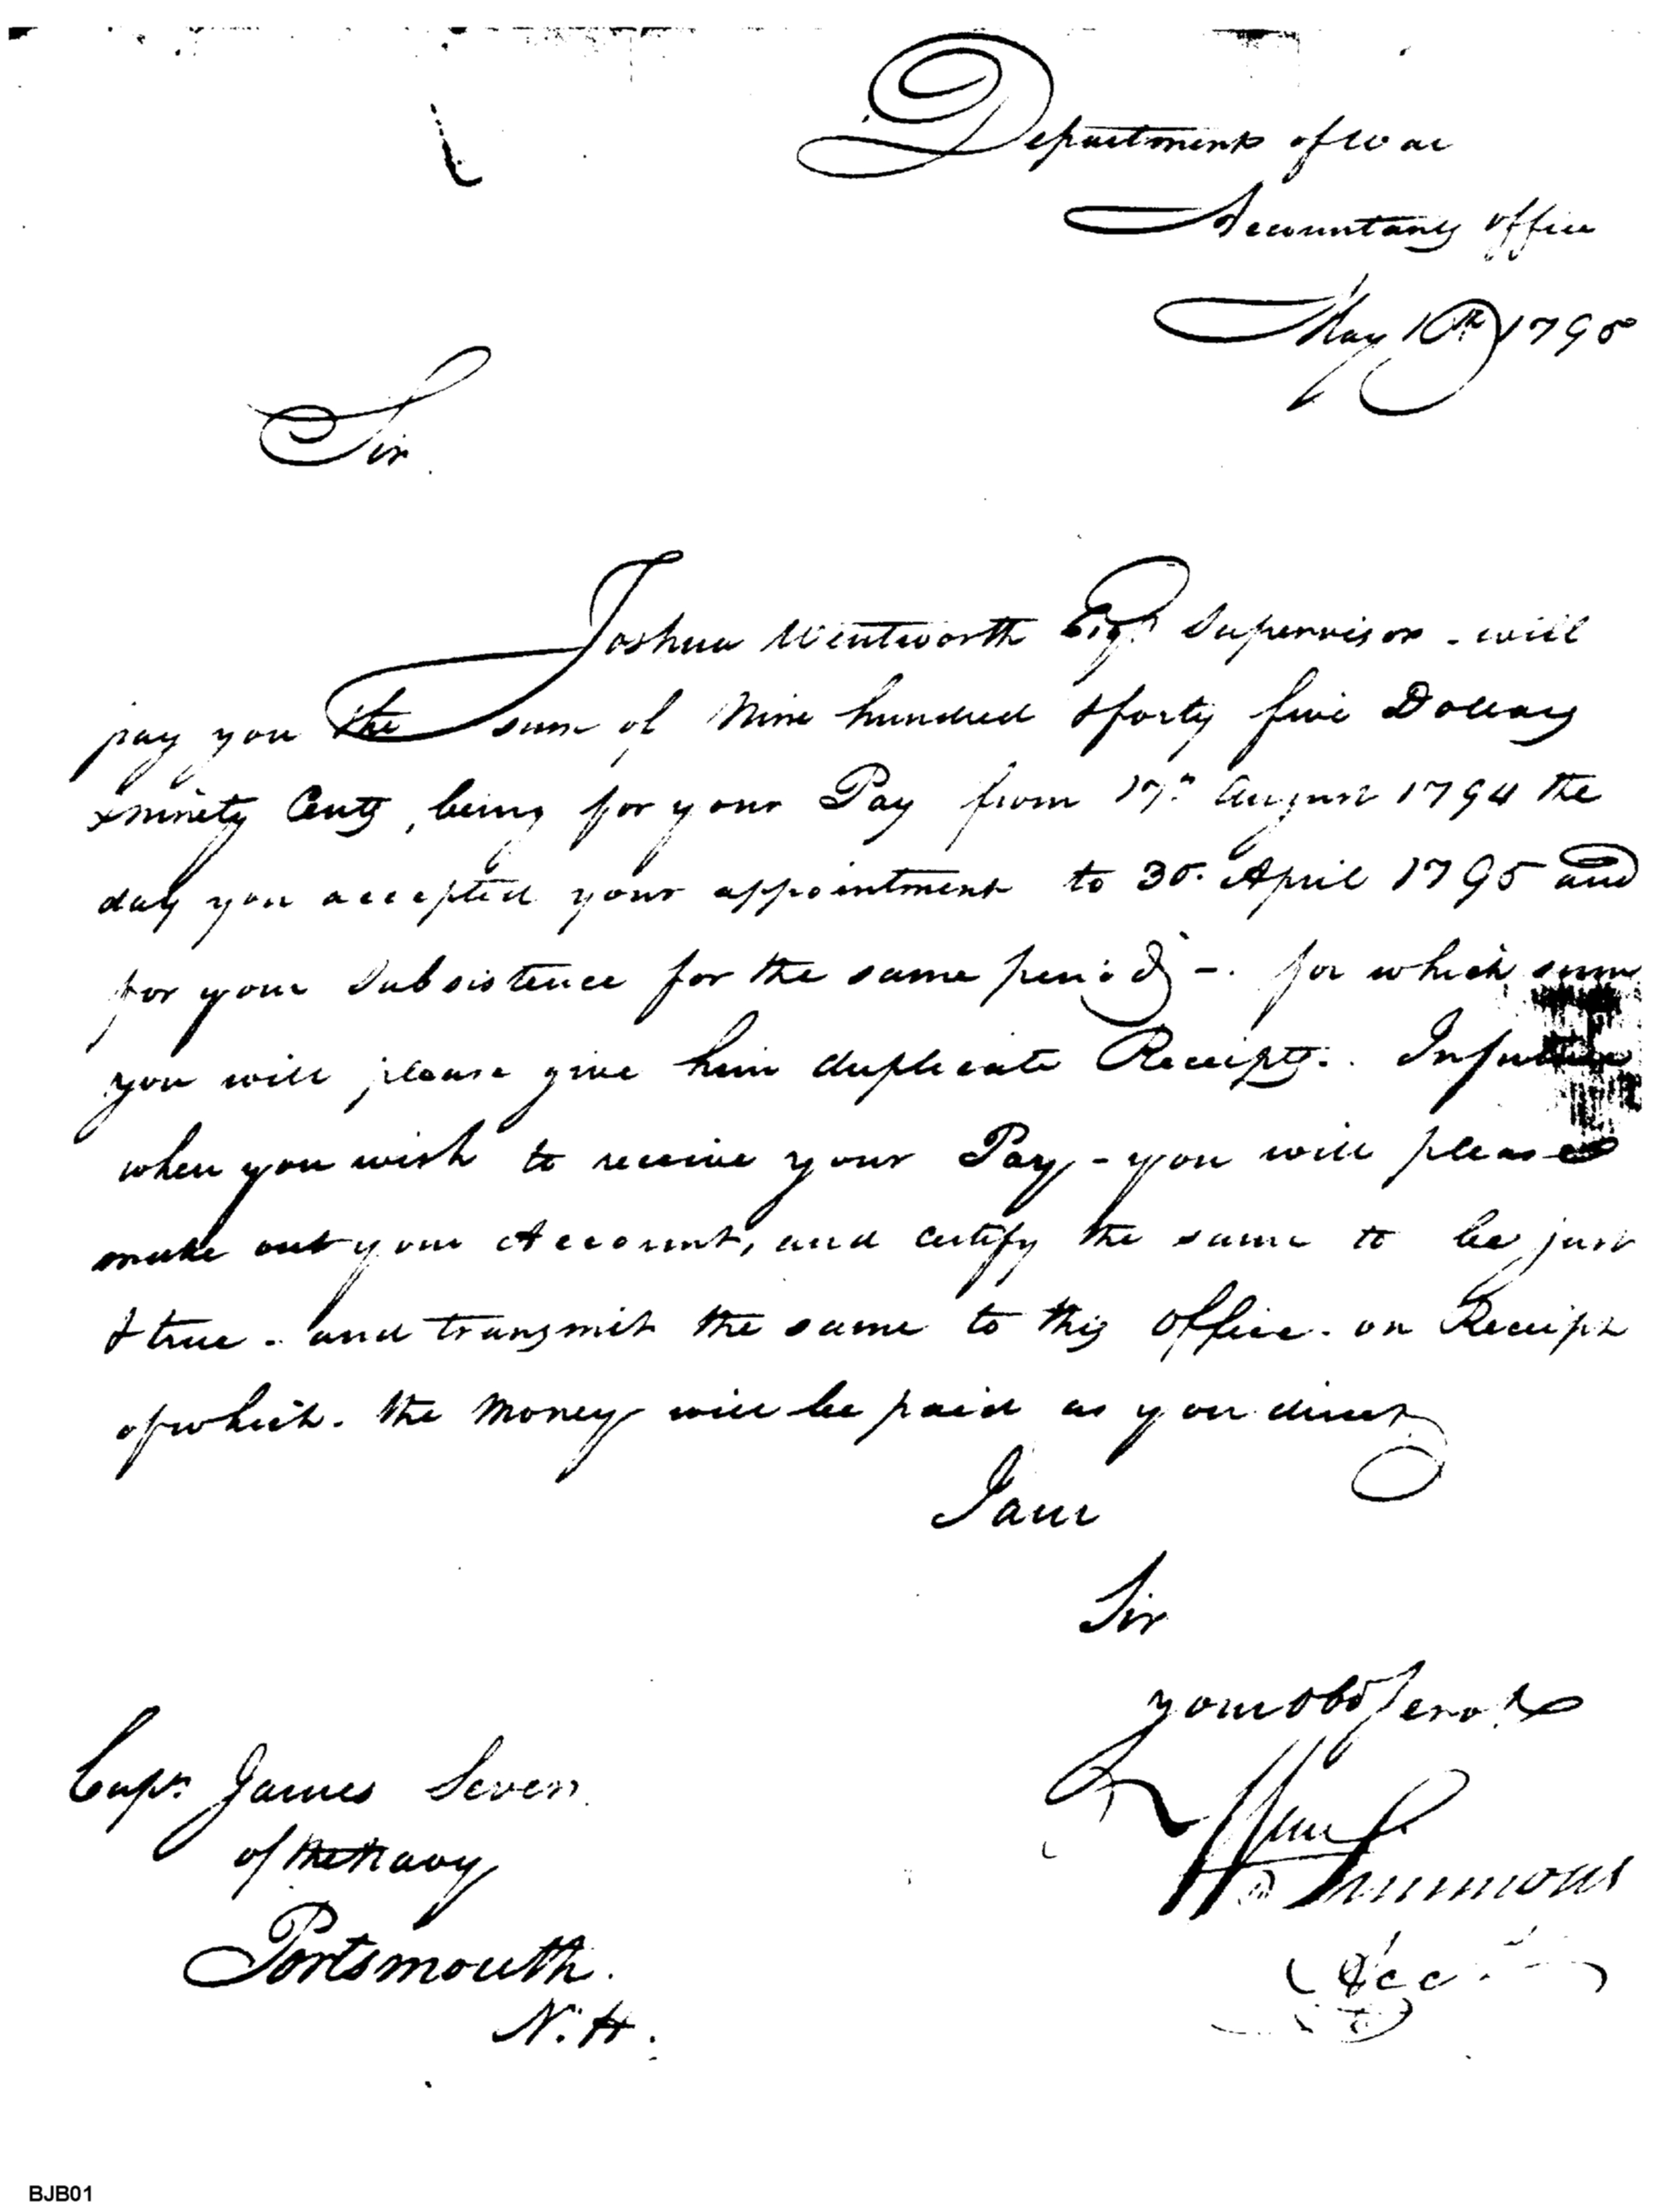 Department of War
Accountants Office
May 10th 1795
Sir
Joshua Wentworth Esqr. Supervisor - will
pay you the sum of Nine hundred & forty five Dollars
& ninety Cents, being for your Pay from 17th August 1794 the
day you accepted your appointment to 30. April 1795 and
for your Subsistence for the same period -. for which sum
you will please give him duplicate Receipts. In future
when you wish to receive your Pay - you will please
make out your Account, and certify the same to be just
& true - and transmit the same to this Office - on Receipt
of which - the Money will be paid as you direct
I am
Sir
your Obd Servt
Wm Simmons
Acc
Capt. James Sever
of the Navy
Portsmouth.
N. H.
BJB01